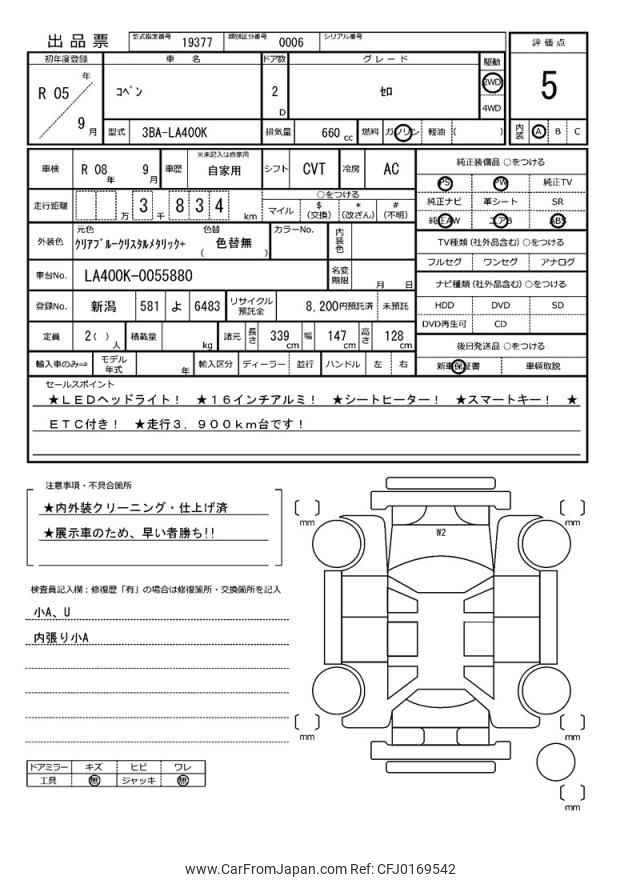 出品票 型式指定番号 19377 類別区分番号 0006 シリアル番号
評価点
5
内装 A B C
初年度登録 車名 ドア数 グレード 駆動
R 05 年 9 月 コペン 2 D セロ 2WD 4WD
型式 3BA-LA400K 排気量 660 cc 燃料 ガソリン 軽油 ( )
車検 R 08 年 9 月 車歴 ※未記入は自家用 自家用 シフト CVT 冷房 AC
走行距離 万 3 千 8 3 4 km
○をつける
マイル $(交換) *(改ざん) #(不明)
外装色 元色 クリアブルークリスタルメタリック+ 色替 ( 色替無 ) カラーNo. 内装色
車台No. LA400K-0055880 名変期限 月 日
登録No. 新潟 581 よ 6483 リサイクル預託金 8,200円預託済 未預託
定員 2( ) 人 積載量 kg 諸元 長さ 339 cm 幅 147 cm 高さ 128 cm
輸入車のみ⇒ モデル年式 年 輸入区分 ディーラー 並行 ハンドル 左 右
純正装備品 ○をつける
PS PW 純正TV
純正ナビ 革シート SR
純正AW エアB ABS
TV種類 (社外品含む) ○をつける
フルセグ ワンセグ アナログ
ナビ種類 (社外品含む) ○をつける
HDD DVD SD
DVD再生可 CD
後日発送品 ○をつける
新車保証書 車輌取説
セールスポイント
★ＬＥＤヘッドライト！ ★１６インチアルミ！ ★シートヒーター！ ★スマートキー！ ★
ＥＴＣ付き！ ★走行３．９００ｋｍ台です！
注意事項・不具合箇所
★内外装クリーニング・仕上げ済
★展示車のため、早い者勝ち!!
検査員記入欄：修復歴「有」の場合は修復箇所・交換箇所を記入
小A、U
内張り小A
ドアミラー キズ ヒビ ワレ
工具 無 ジャッキ 無
W2
mm
mm
mm
mm
mm
www.CarFromJapan.com Ref: CFJ0169542